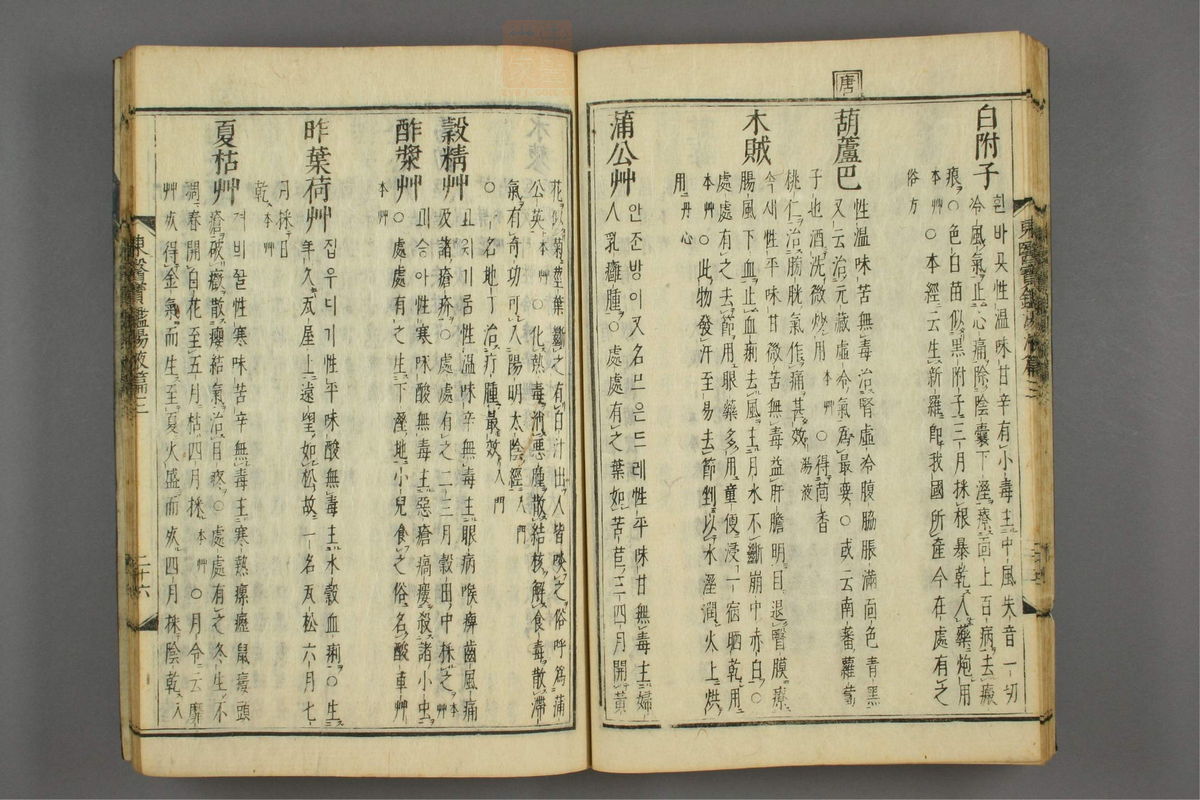 唐
白附子
흰바곳性温味甘辛有小毒主中風失音一切
冷風氣止心痛除陰囊下溼痒面上百病去瘢
痕○色白苗似黑附子三月採根暴乾入藥炮用
本艸○本經云生新羅即我國所產今在處有之
俗方
葫蘆巴
性温味苦無毒治腎虛冷腹脇脹滿面色青黑
又云治元藏虛冷氣爲最要○或云南蕃蘿蔔
子也酒洗微炒用本艸○得茴香
桃仁治膀胱氣作痛甚效湯液
木賊
속새性平味甘微苦無毒益肝膽明目退瞖膜療
腸風下血止血痢去風主月水不斷崩中赤白○
處處有之去節用眼藥多用童便浸一宿晒乾用
本艸○此物發汗至易去節剉以水溼潤火上烘
用丹心
蒲公艸
안즌방이又名므은드레性平味甘無毒主婦
人乳癰腫○處處有之葉如苦苣三四月開黃
花似菊莖葉斷之有白汁出人皆啖之俗呼爲蒲
公英本艸○化熱毒消惡腫散結核解食毒散滯
氣有奇功可入陽明太陰經入門
○一名地丁治疔腫最效入門
穀精艸
고윗가롬性温味辛無毒主眼病喉痺齒風痛
及諸瘡疥○處處有之二三月穀田中採之本艸
酢漿艸
괴승아性寒味酸無毒主惡瘡瘑瘻殺諸小虫
○處處有之生下溼地小兒食之俗名酸車艸
本艸
昨葉荷艸
집우디기性平味酸無毒主水穀血痢○生
年久瓦屋上遠望如松故一名瓦松六月七
月採日
乾本艸
夏枯艸
져비꿀性寒味苦辛無毒主寒熱瘰癧鼠瘻頭
瘡破癥散癭結氣治目疼○處處有之冬生不
凋春開白花至五月枯四月採本艸○月令云靡
艸死得金氣而生至夏火盛而死四月採陰乾入
東醫寶鑑湯液篇三
二十六
東醫寶鑑湯液篇三